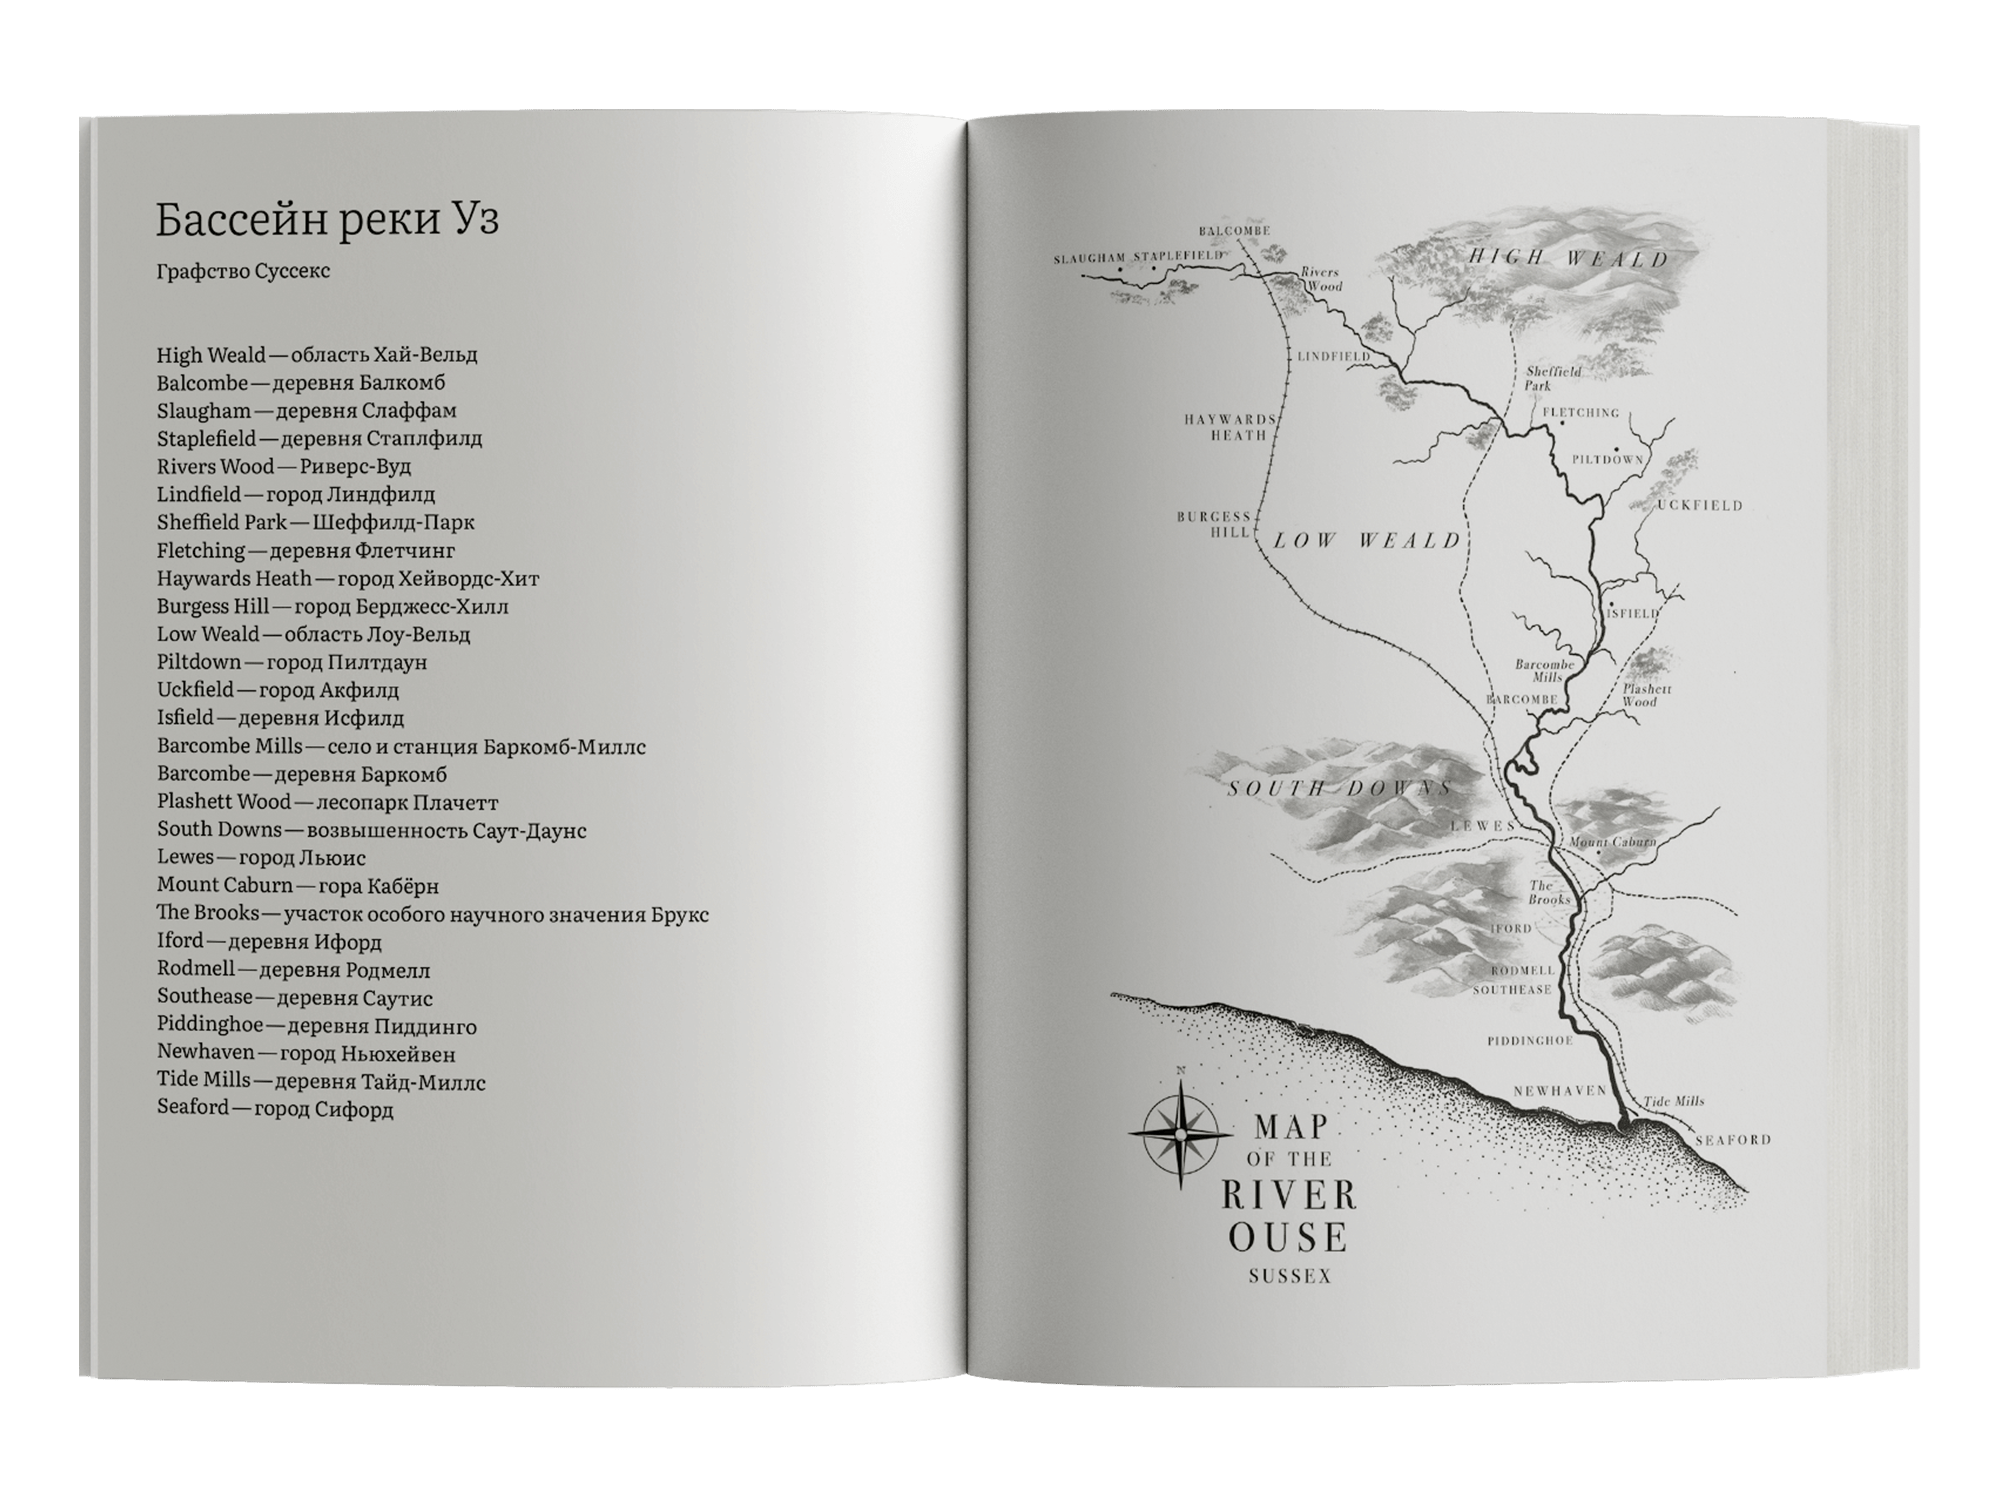 Бассейн реки Уз
Графство Суссекс
High Weald—область Хай-Вельд
Balcombe—деревня Балкомб
Slaugham—деревня Слаффам
Staplefield—деревня Стаплфилд
Rivers Wood—Риверс-Вуд
Lindfield—город Линдфилд
Sheffield Park—Шеффилд-Парк
Fletching—деревня Флетчинг
Haywards Heath—город Хейвордс-Хит
Burgess Hill—город Берджесс-Хилл
Low Weald—область Лоу-Вельд
Piltdown—город Пилтдаун
Uckfield—город Акфилд
Isfield—деревня Исфилд
Barcombe Mills—село и станция Баркомб-Миллс
Barcombe—деревня Баркомб
Plashett Wood—лесопарк Плачетт
South Downs—возвышенность Саут-Даунс
Lewes—город Льюис
Mount Caburn—гора Кабёрн
The Brooks—участок особого научного значения Брукс
Iford—деревня Ифорд
Rodmell—деревня Родмелл
Southease—деревня Саутис
Piddinghoe—деревня Пиддинго
Newhaven—город Ньюхейвен
Tide Mills—деревня Тайд-Миллс
Seaford—город Сифорд
BALCOMBE
SLAUGHAM STAPLEFIELD
HIGH WEALD
Rivers
Wood
LINDFIELD
Sheffield
Park
FLETCHING
HAYWARDS
HEATH
PILTDOWN
UCKFIELD
BURGESS
HILL
LOW WEALD
ISFIELD
Barcombe
Mills
BARCOMBE
Plashett
Wood
SOUTH DOWNS
LEWES
Mount Caburn
The
Brooks
IFORD
RODMELL
SOUTHEASE
PIDDINGHOE
NEWHAVEN
Tide Mills
SEAFORD
N
MAP
OF THE
RIVER
OUSE
SUSSEX